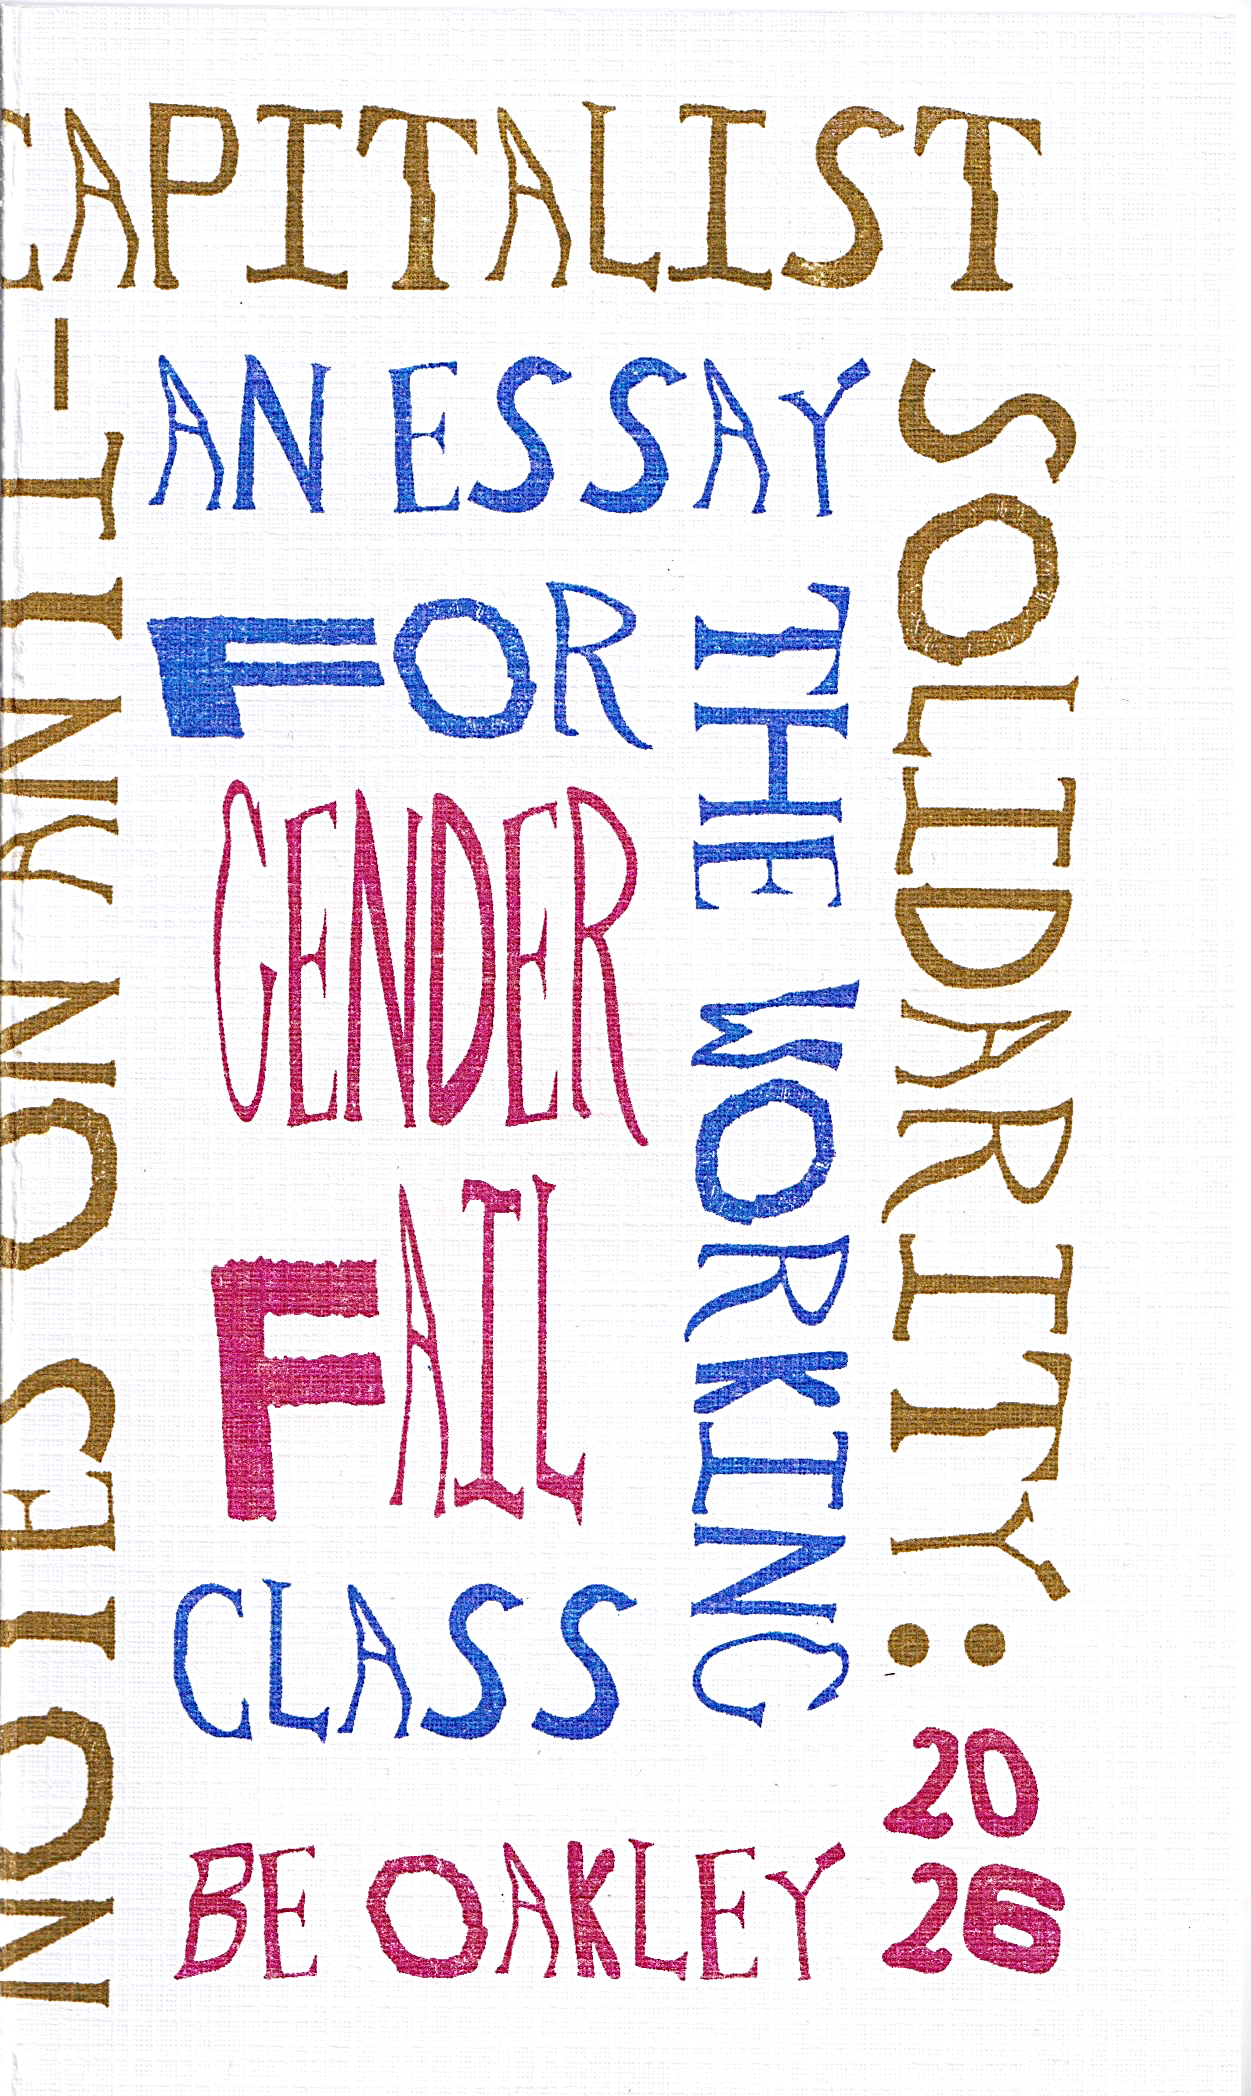 NOTES ON ANTI-
CAPITALIST
SOLIDARITY:
AN ESSAY
FOR
THE WORKING
CLASS
GENDER
FAIL
BE OAKLEY
20
26